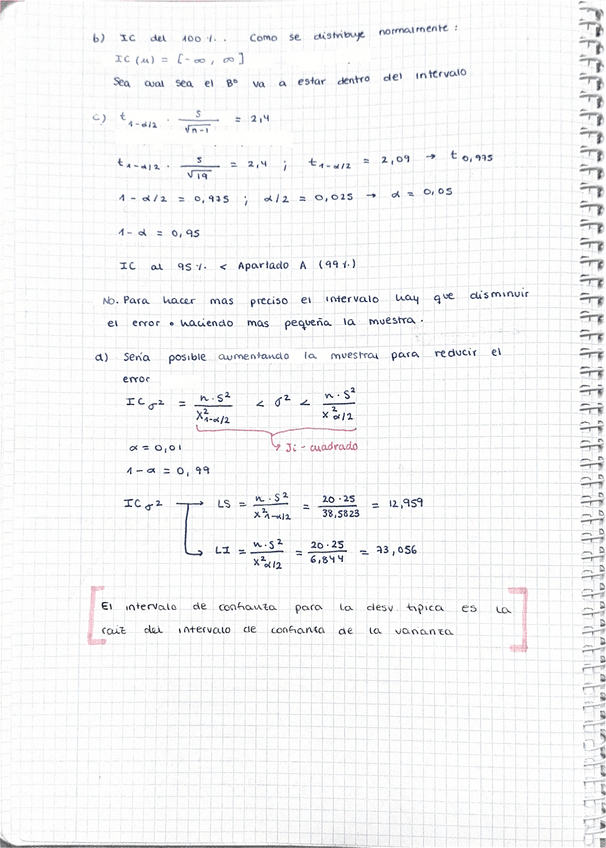 b) IC del 100 %. Como se distribuye normalmente:
IC (μ) = [-∞, ∞]
Sea cual sea el Bº va a estar dentro del intervalo
c) t 1-α/2 · S/√n-1 = 2,4
t 1-α/2 · S/√19 = 2,4 ; t 1-α/2 = 2,09 → t 0,975
1 - α/2 = 0,975 ; α/2 = 0,025 → α = 0,05
1-α = 0,95
IC al 95 %. < Apartado A (99 %)
No. Para hacer mas preciso el intervalo hay que disminuir
el error o haciendo mas pequeña la muestra.
d) Seria posible aumentando la muestra, para reducir el
error
IC σ² = n·S²/X² 1-α/2 < σ² < n·S²/X² α/2
→ Ji-cuadrado
α = 0,01
1-α = 0,99
IC σ² → LS = n·S²/X² 1-α/2 = 20·25/38,5823 = 12,959
→ LI = n·S²/X² α/2 = 20·25/6,844 = 73,056
El intervalo de confianza para la desv tipica es la
raiz del intervalo de confianza de la varianza